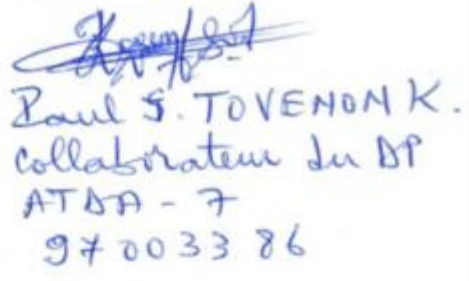 Paul S. TOVENON K.
Collaborateur du DP
ATDA - 7
97 00 33 86